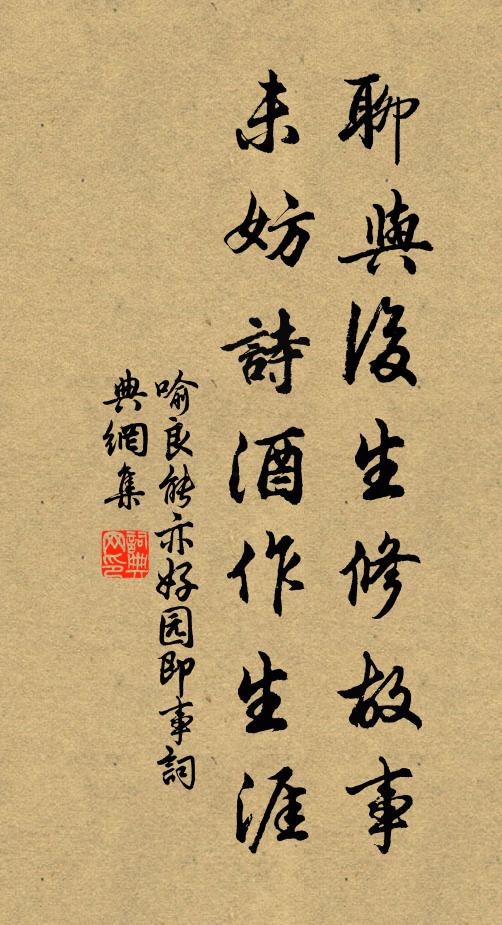 聊與後生修故事
未妨詩酒作生涯
喻良能亦好园即事詞
典網集
詞典网印